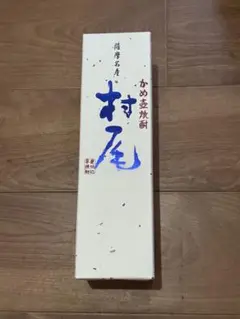 かめ壺焼酎
薩摩名産
村尾